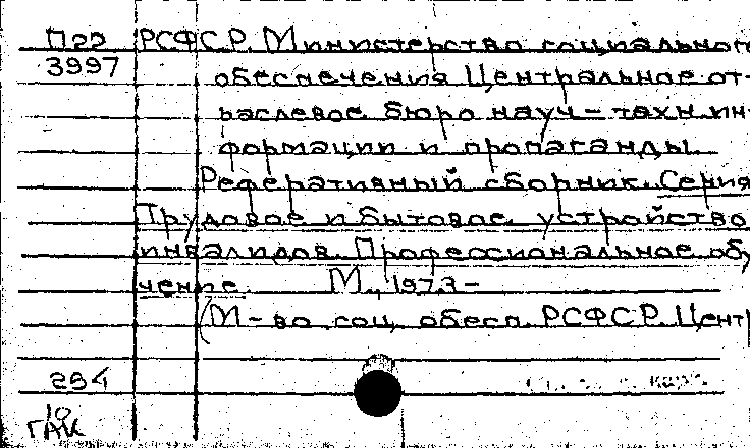 П22 РСФСР. Министерство социального
3997 обеспечения Центральное от-
раслевое бюро науч-техн. ин-
формации и пропаганды.
Реферативный сборник. Серия
Трудовое и бытовое устройство
инвалидов. Профессиональное обу
чение. М., 1973-
(М-во соц. обесп. РСФСР. Центр
254
10
ГАК